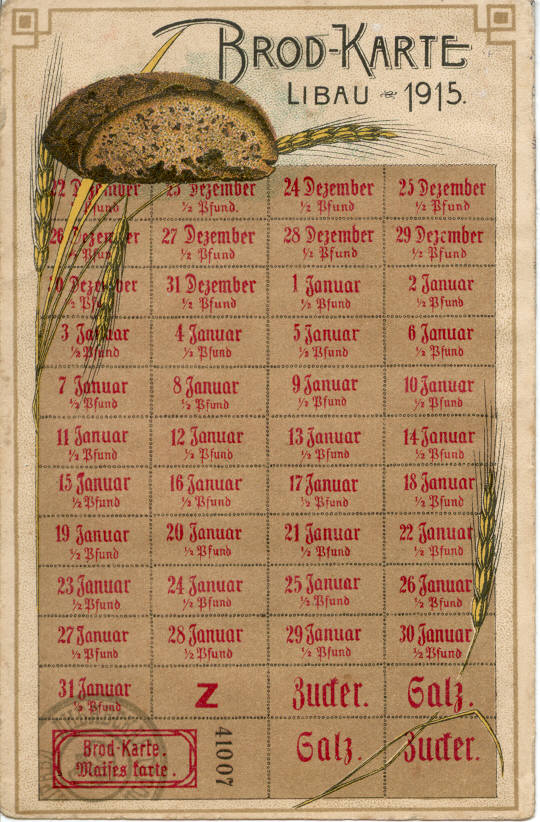 BROD-KARTE
LIBAU 1915.
22 Dezember 23 Dezember 24 Dezember 25 Dezember
Pfund ½ Pfund. ½ Pfund ½ Pfund
26 Dezember 27 Dezember 28 Dezember 29 Dezember
Pfund ½ Pfund ½ Pfund ½ Pfund
30 Dezember 31 Dezember 1 Januar 2 Januar
½ Pfund ½ Pfund ½ Pfund ½ Pfund
3 Januar 4 Januar 5 Januar 6 Januar
½ Pfund ½ Pfund ½ Pfund ½ Pfund
7 Januar 8 Januar 9 Januar 10 Januar
½ Pfund ½ Pfund ½ Pfund ½ Pfund
11 Januar 12 Januar 13 Januar 14 Januar
½ Pfund ½ Pfund ½ Pfund ½ Pfund
15 Januar 16 Januar 17 Januar 18 Januar
½ Pfund ½ Pfund ½ Pfund ½ Pfund
19 Januar 20 Januar 21 Januar 22 Januar
½ Pfund ½ Pfund ½ Pfund ½ Pfund
23 Januar 24 Januar 25 Januar 26 Januar
½ Pfund ½ Pfund ½ Pfund ½ Pfund
27 Januar 28 Januar 29 Januar 30 Januar
½ Pfund ½ Pfund ½ Pfund ½ Pfund
31 Januar Z Zucker. Salz.
½ Pfund
Brod-Karte. 41007 Salz. Zucker.
Maises karte.